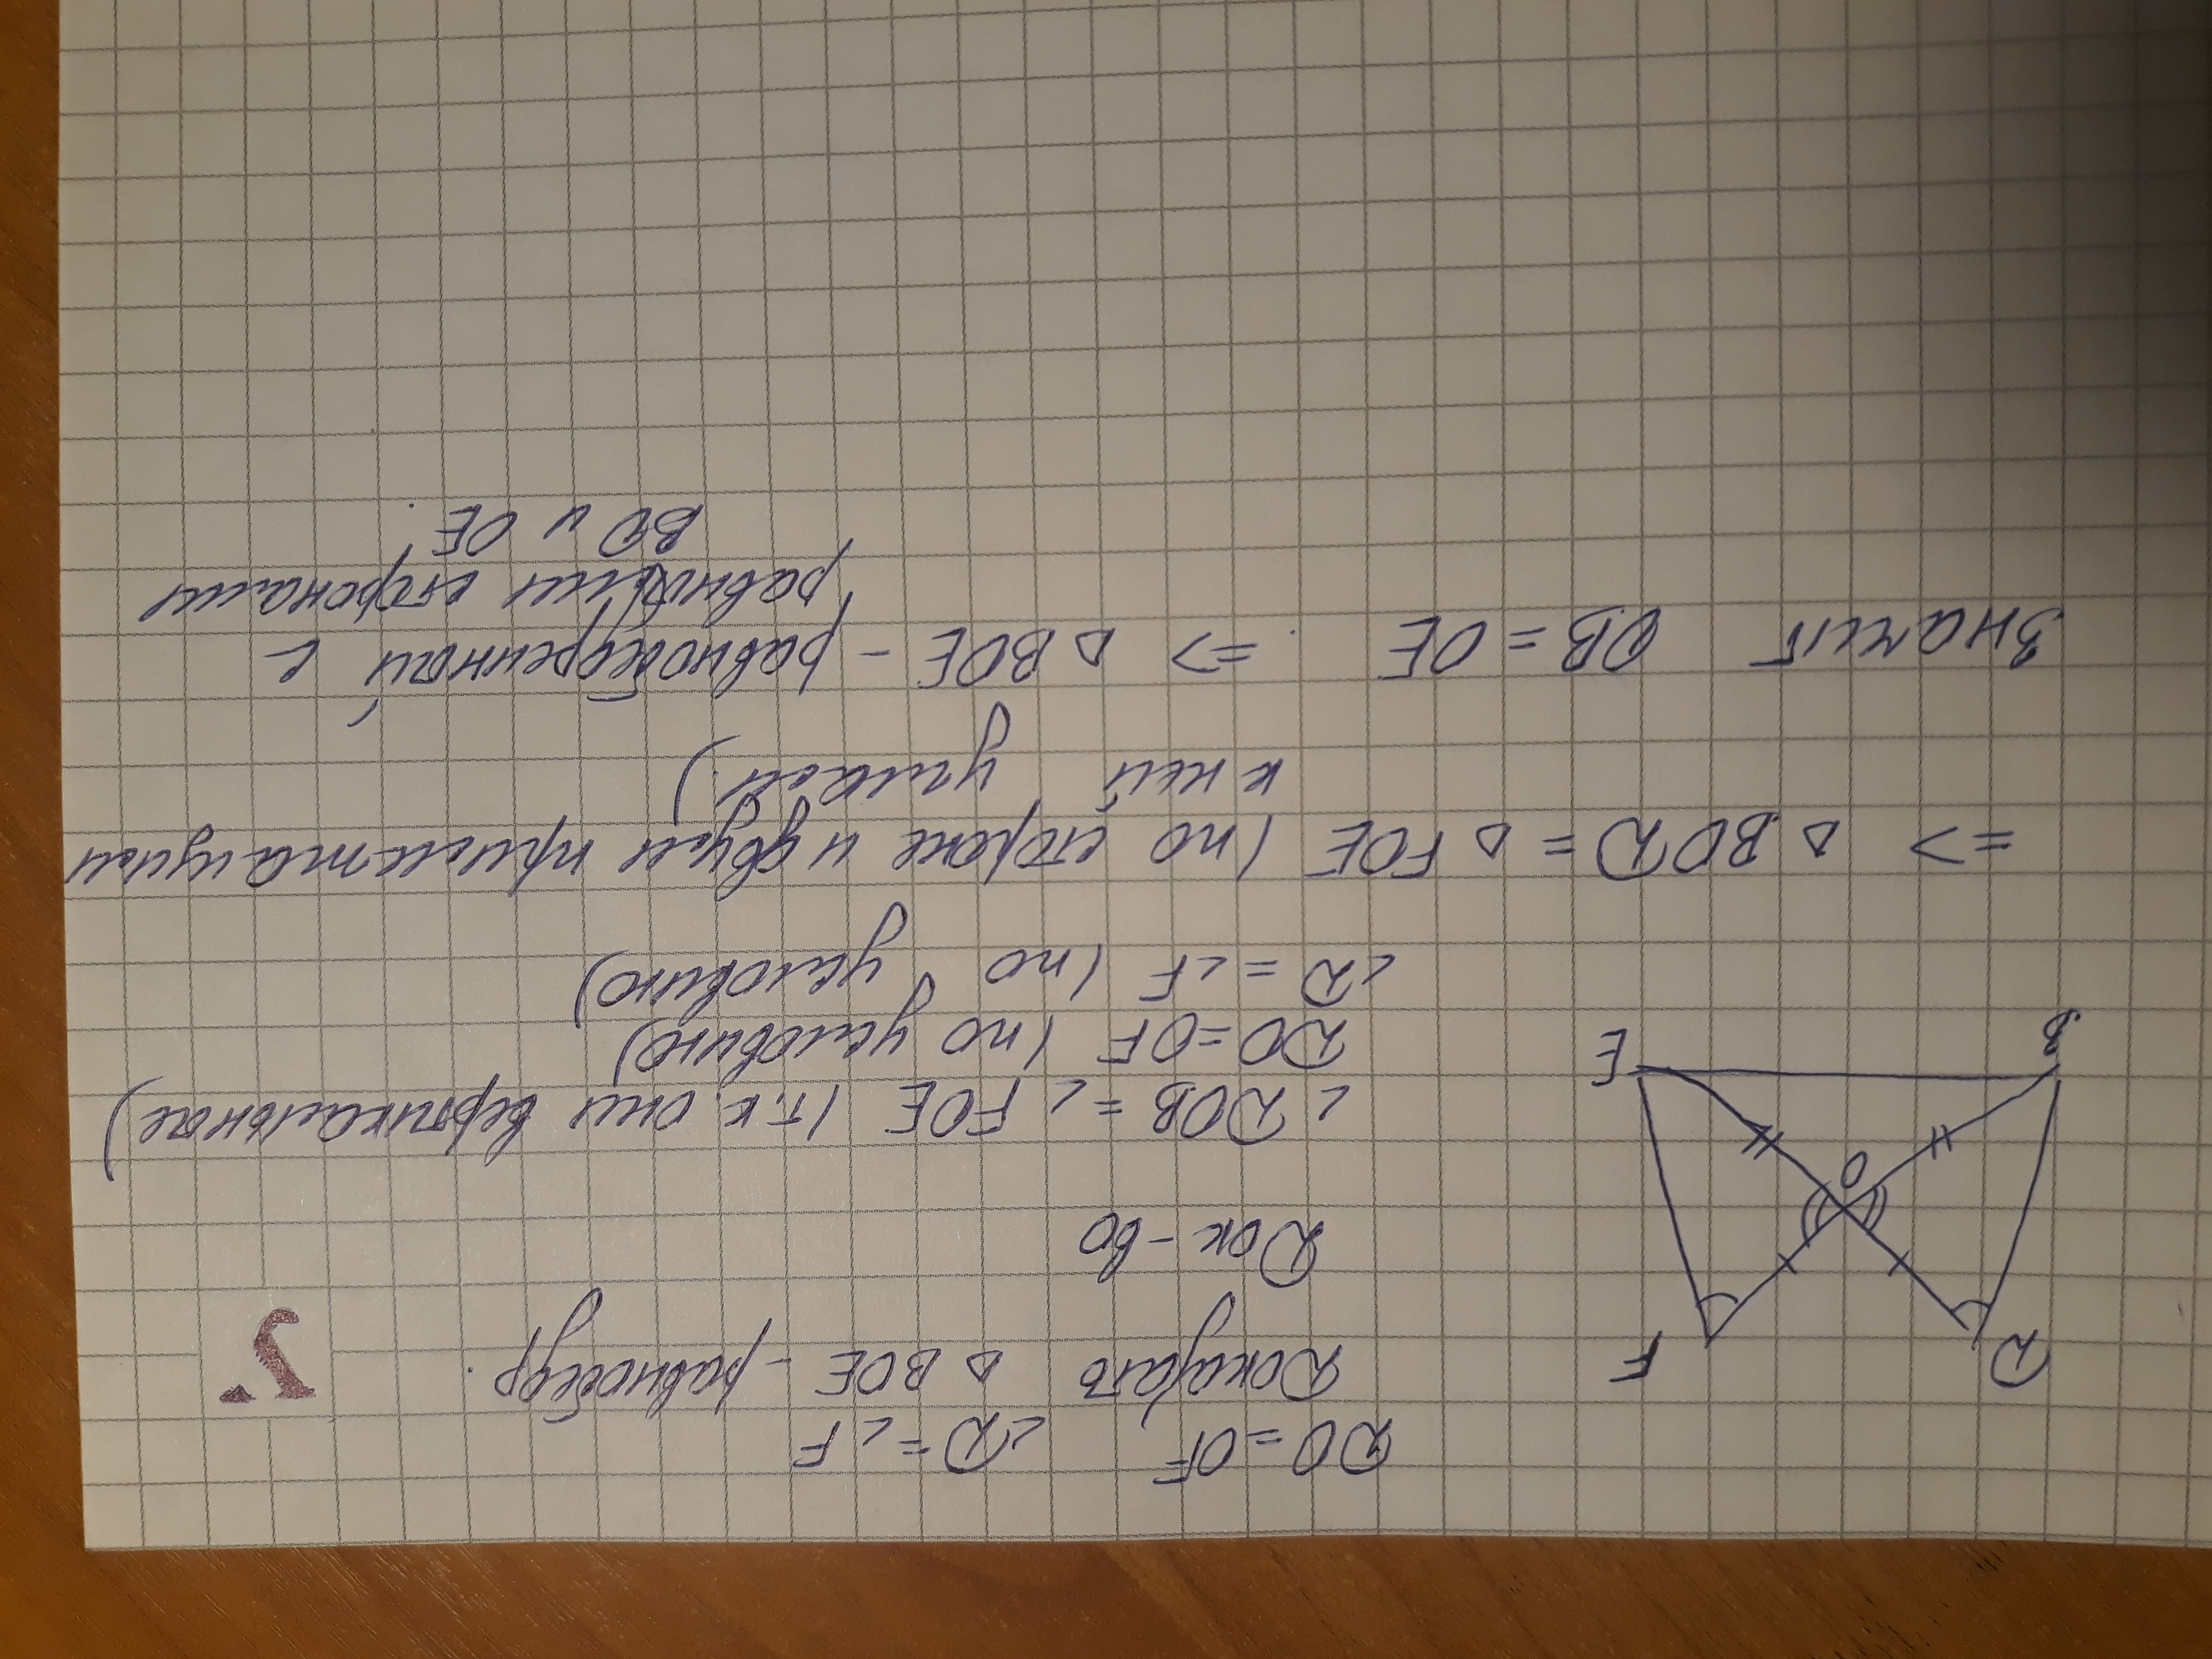 DO = OF ∠D = ∠F
Доказать ΔBOE - равнобедр.
2.
Док-во
D F
O
B E
∠DOB = ∠FOE (т.к. они вертикальные)
DO = OF (по условию)
∠D = ∠F (по условию)
=> ΔBOD = ΔFOE (по стороне и двум прилежащим
к ней углам)
Значит OB = OE => ΔBOE - равнобедренный с
равными сторонами
BO и OE.